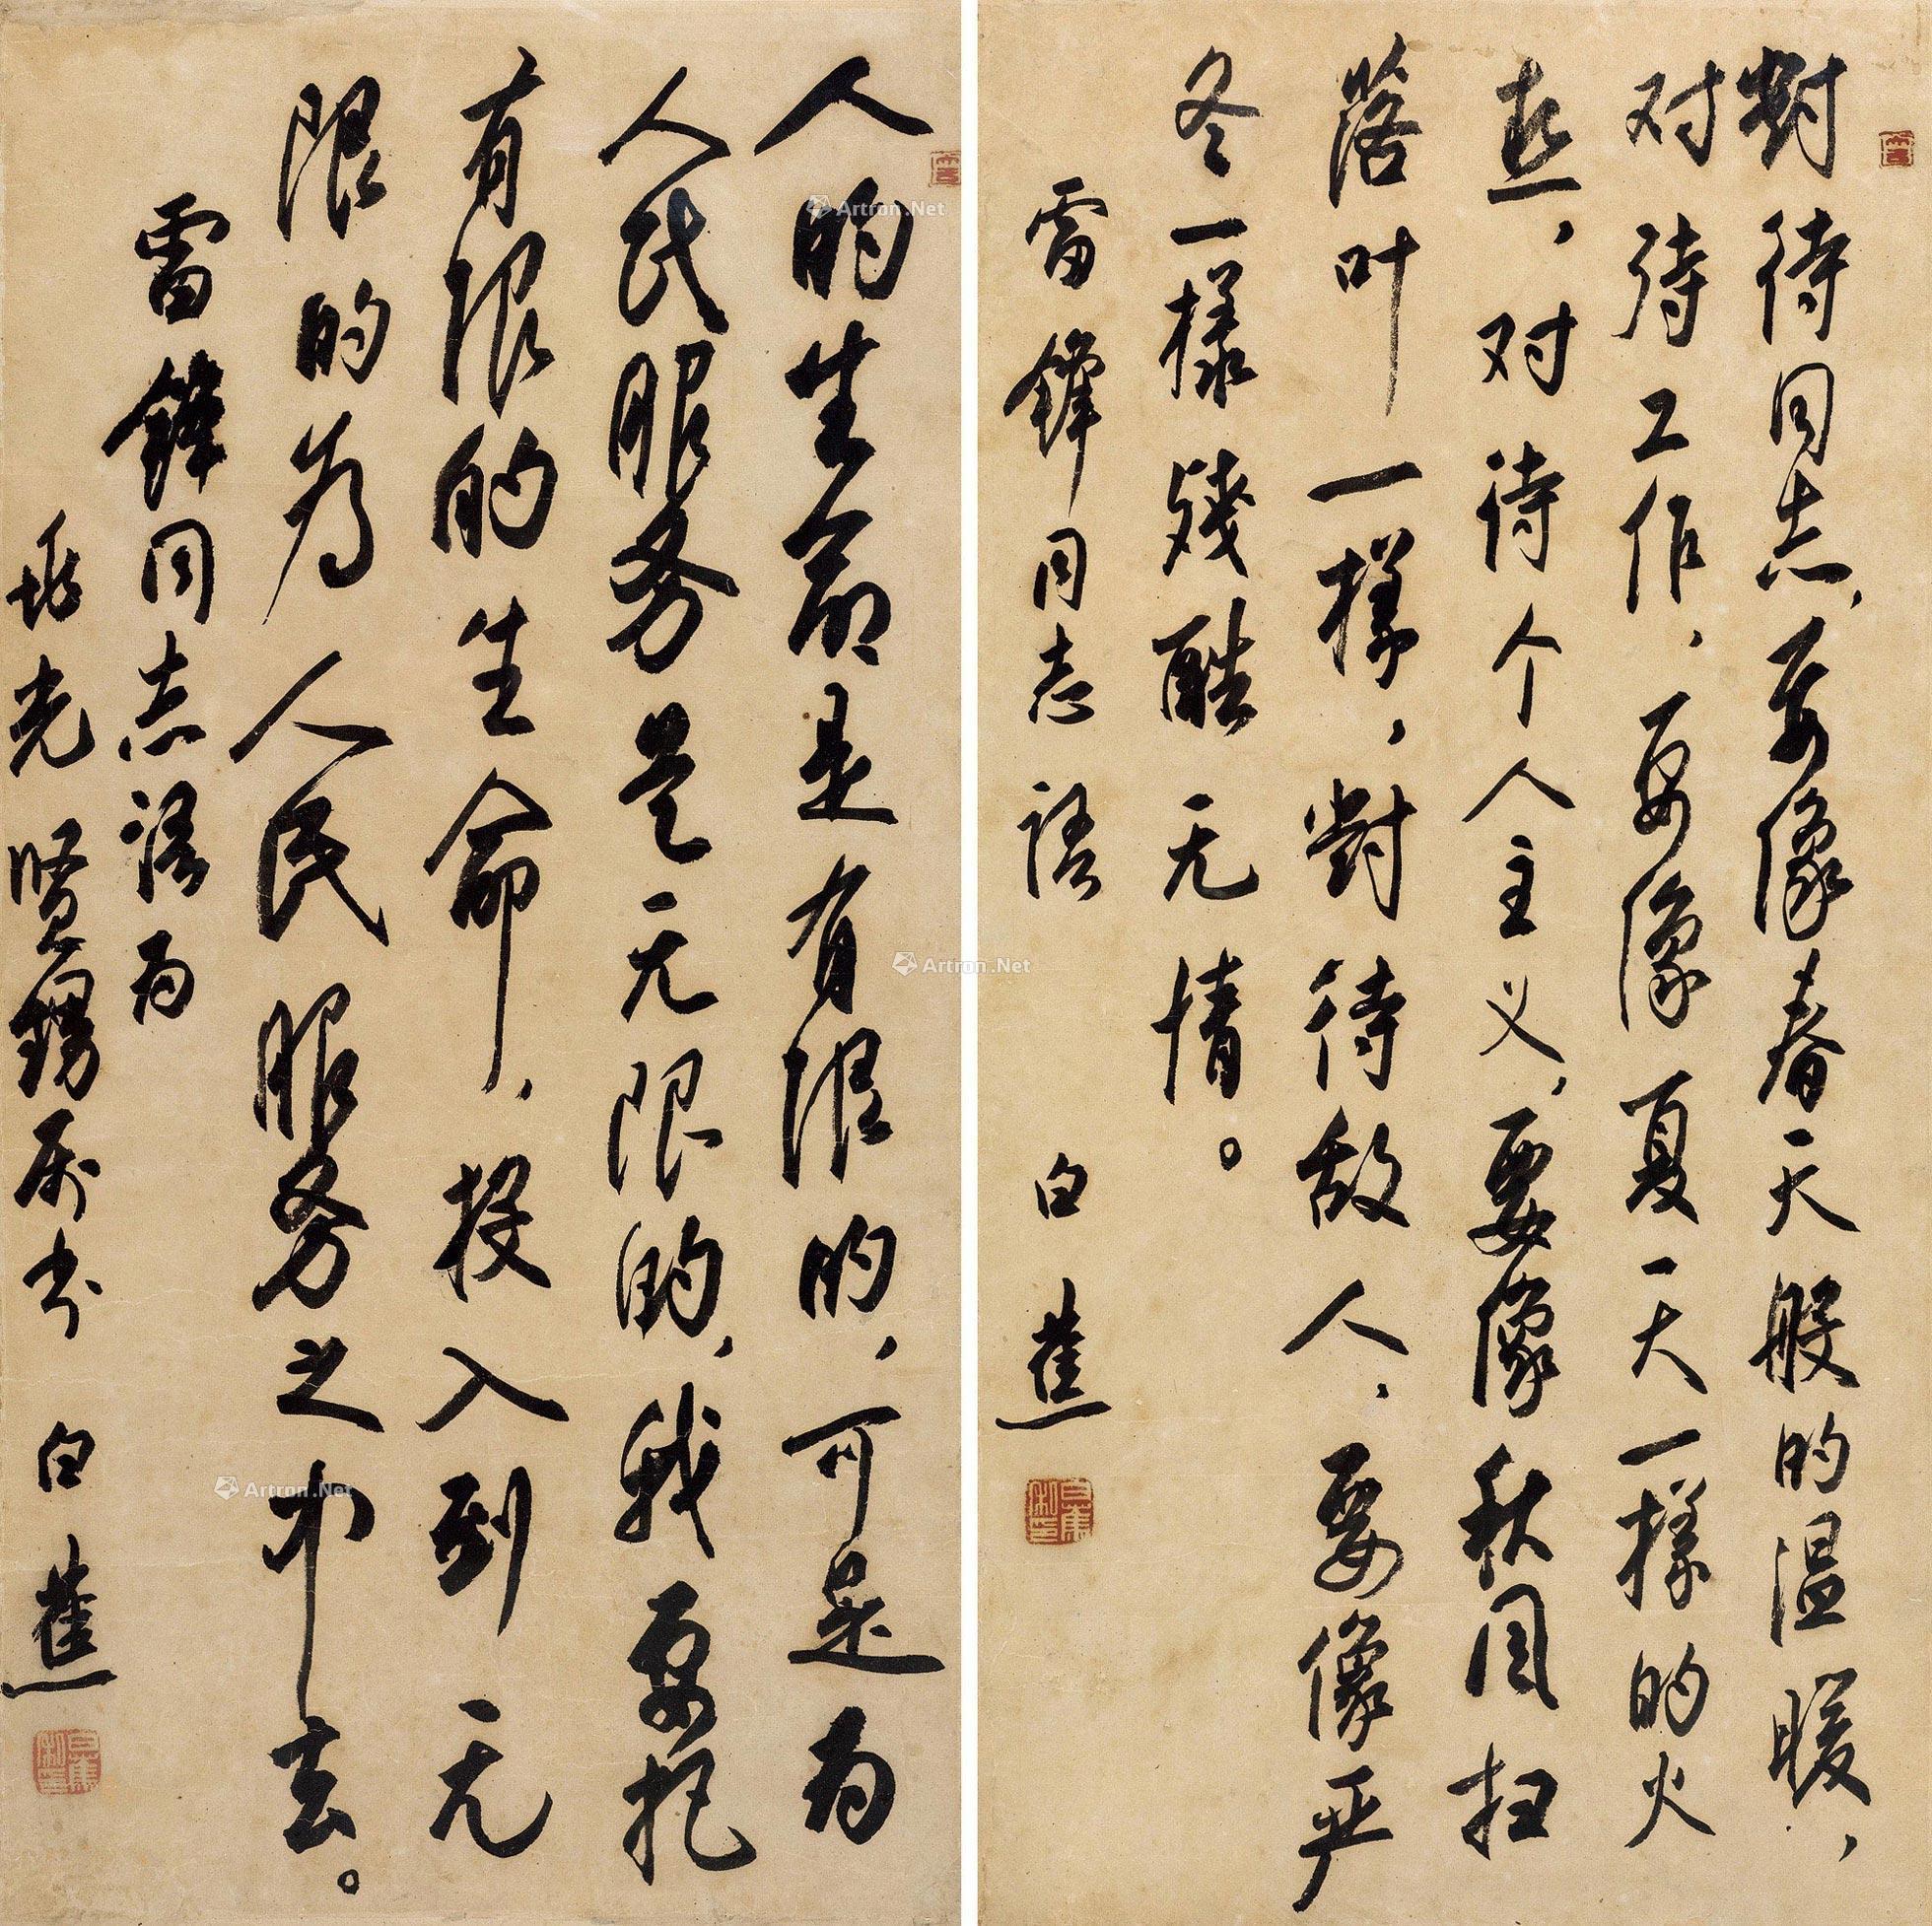 對待同志,要像春天般的温暖,
对待工作,要像夏天一樣的火
热,对待个人主义,要像秋风扫
落叶一樣,對待敌人,要像严
冬一樣殘酷无情。
雷鋒同志语 白蕉
白蕉私印
人的生命是有限的,可是为
人民服务是无限的,我要把
有限的生命,投入到无
限的为人民服务之中去。
雷鋒同志语为
光贤甥属书 白蕉
白蕉私印
Artron.Net
Artron.Net
Artron.Net